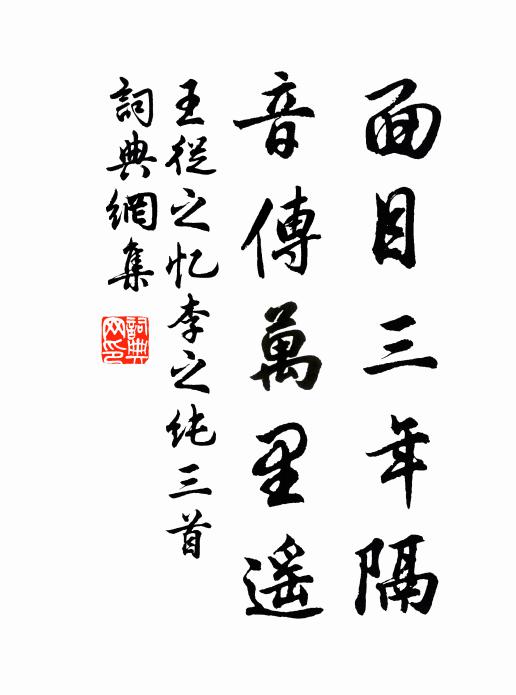 面目三年隔
音傳萬里遥
王從之忆李之纯三首
詞典網集
詞典网印